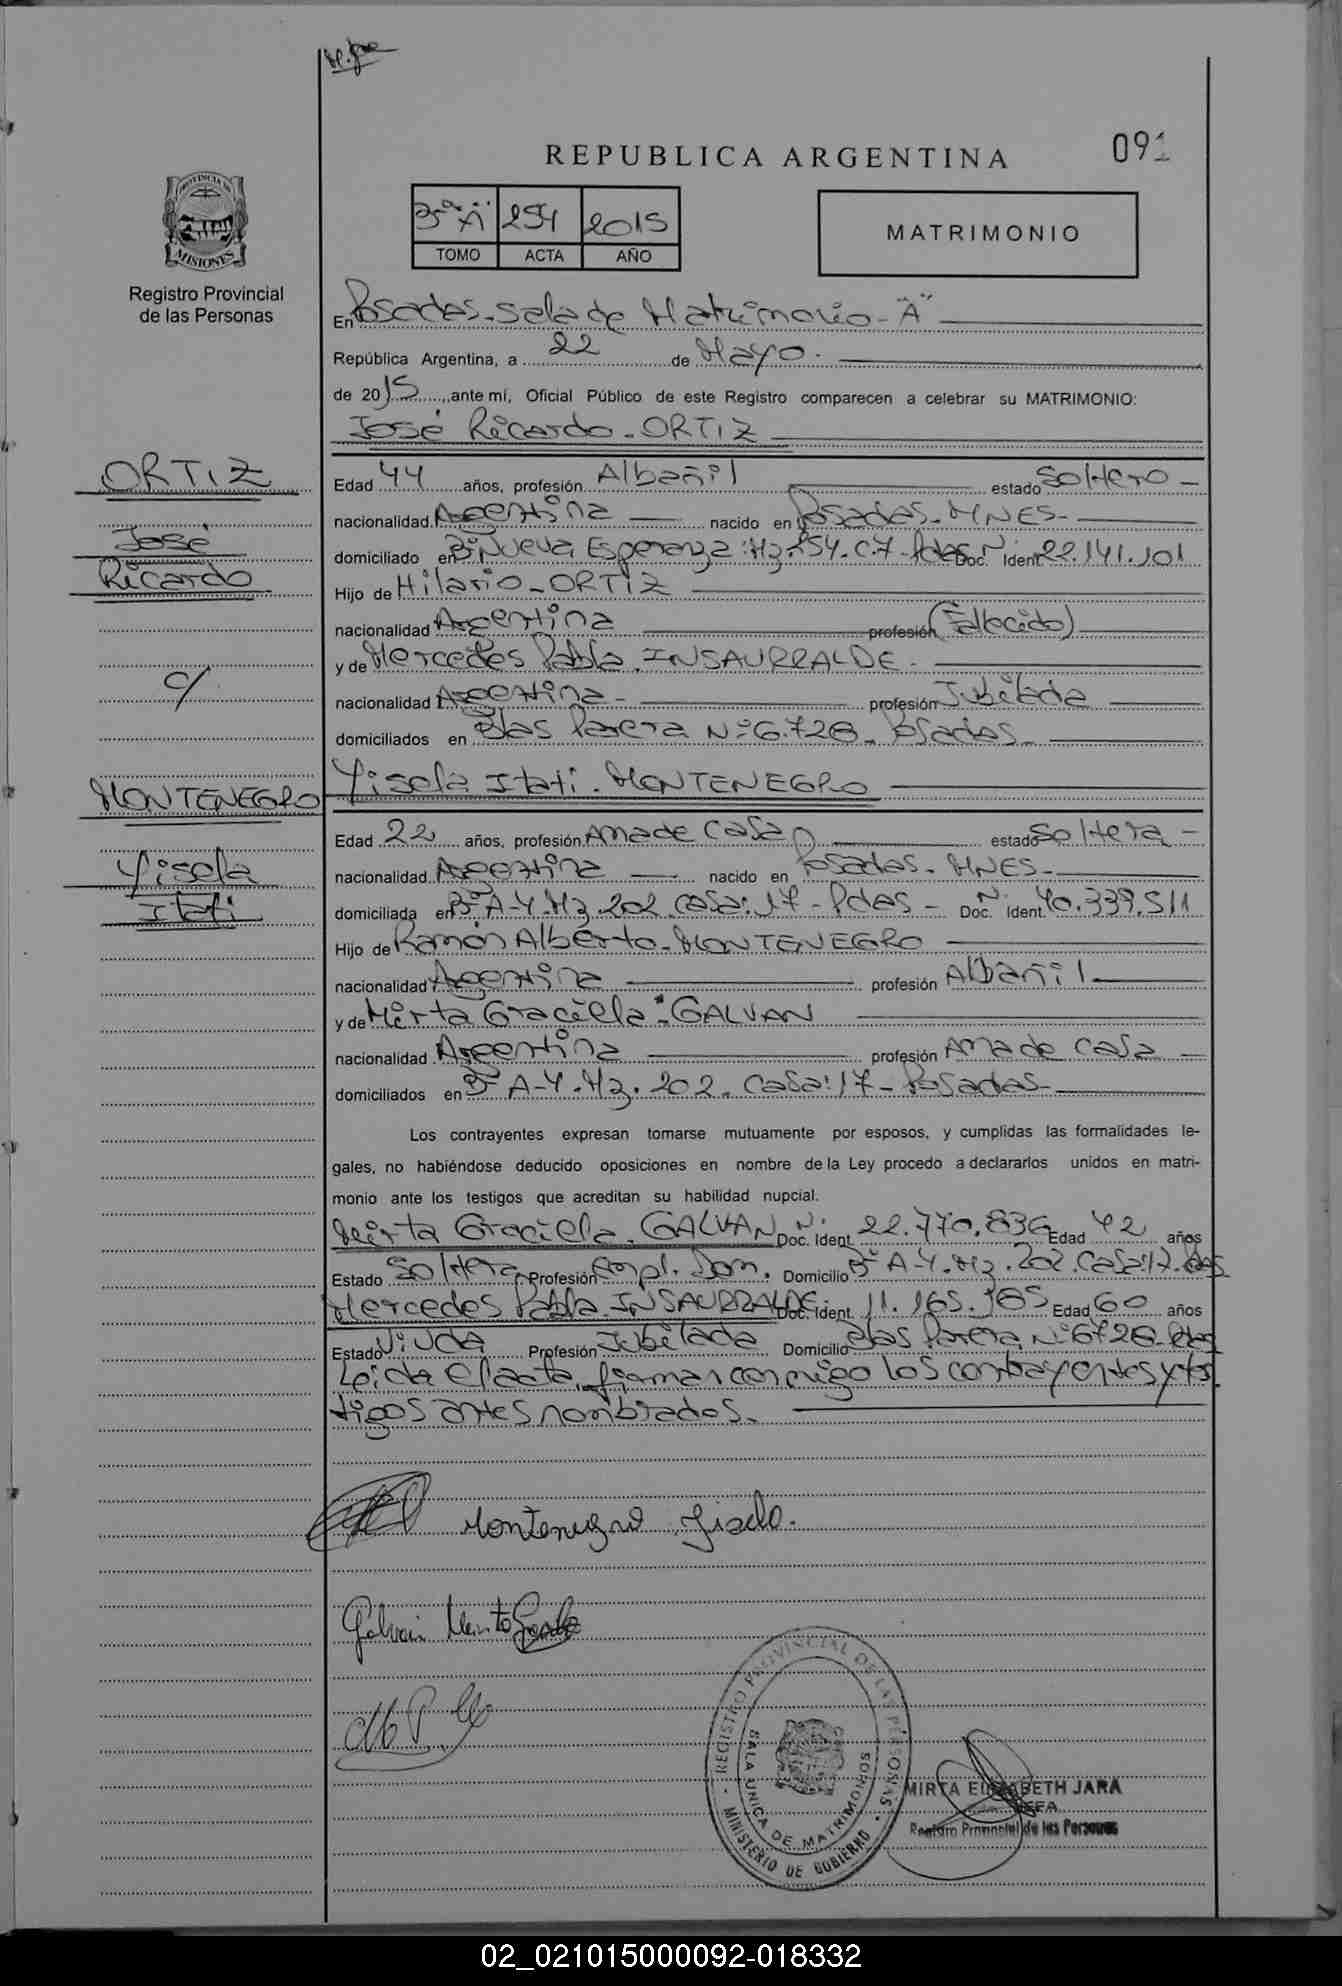 REPUBLICA ARGENTINA
091
3º "A" 254 2015
TOMO ACTA AÑO
MATRIMONIO
PROVINCIA DE
MISIONES
Registro Provincial
de las Personas
En Posadas - Sala de Matrimonio - "A"
República Argentina, a 22 de Mayo.
de 2015, ante mí, Oficial Público de este Registro comparecen a celebrar su MATRIMONIO:
José Ricardo - ORTIZ
ORTIZ
José
Ricardo
c/
MONTENEGRO
Yisela
Itatí
Edad 44 años, profesión Albañil estado Soltero -
nacionalidad Argentina nacido en Posadas - MNES -
domiciliado en Bº Nueva Esperanza: Mz. 154 - C.7 - Pdas Doc. Nº Ident. 22.141.101
Hijo de Hilario - ORTIZ
nacionalidad Argentina profesión (Fallecido)
y de Mercedes Pabla. INSAURRALDE.
nacionalidad Argentina - profesión Jubilada
domiciliados en Blas Parera Nº 6.728 - Posadas -
Yisela Itatí. MONTENEGRO
Edad 22 años, profesión Ama de Casa estado Soltera -
nacionalidad Argentina nacido en Posadas - MNES -
domiciliada en Bº A-4. Mz. 202. Casa: 17 - Pdas - Doc. Nº Ident. 40.339.511
Hijo de Ramón Alberto - MONTENEGRO
nacionalidad Argentina profesión Albañil
y de Mirta Graciela - GALVAN
nacionalidad Argentina profesión Ama de Casa
domiciliados en Bº A-4. Mz. 202. Casa: 17 - Posadas -
Los contrayentes expresan tomarse mutuamente por esposos, y cumplidas las formalidades le-
gales, no habiéndose deducido oposiciones en nombre de la Ley procedo a declararlos unidos en matri-
monio ante los testigos que acreditan su habilidad nupcial.
Mirta Graciela. GALVAN Doc. Nº Ident. 22.770.836 Edad 42 años
Estado Soltera Profesión Empl. Dom. Domicilio Bº A-4. Mz. 202. Casa: 17. Pdas
Mercedes Pabla. INSAURRALDE Doc. Ident. 11.165.165 Edad 60 años
Estado Viuda Profesión Jubilada Domicilio Blas Parera Nº 6728 - Pdas
Leida el acta, firman conmigo los contrayentes y tes
tigos antes nombrados.
Montenegro Yisela.
Galvan Mirta Graciela
REGISTRO PROVINCIAL DE LAS PERSONAS
SALA UNICA DE MATRIMONIOS
MINISTERIO DE GOBIERNO
MIRTA ELIZABETH JARA
JEFA
Registro Provincial de las Personas
02_021015000092-018332